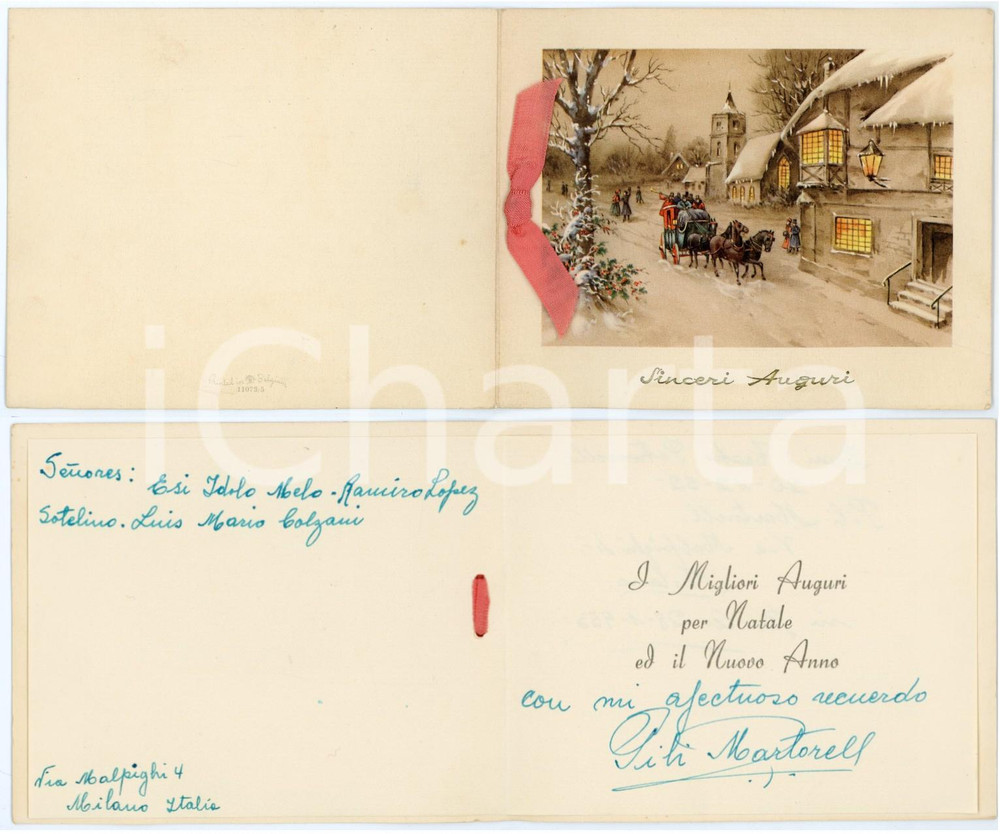 Sinceri Auguri
11072/5
iCharta
Señores: Esi Idolo Melo - Ramiro Lopez
Sotelino. Luis Mario Colzani
I Migliori Auguri
per Natale
ed il Nuovo Anno
con mi afectuoso recuerdo
Pili Martorell
Via Malpighi 4
Milano Italia